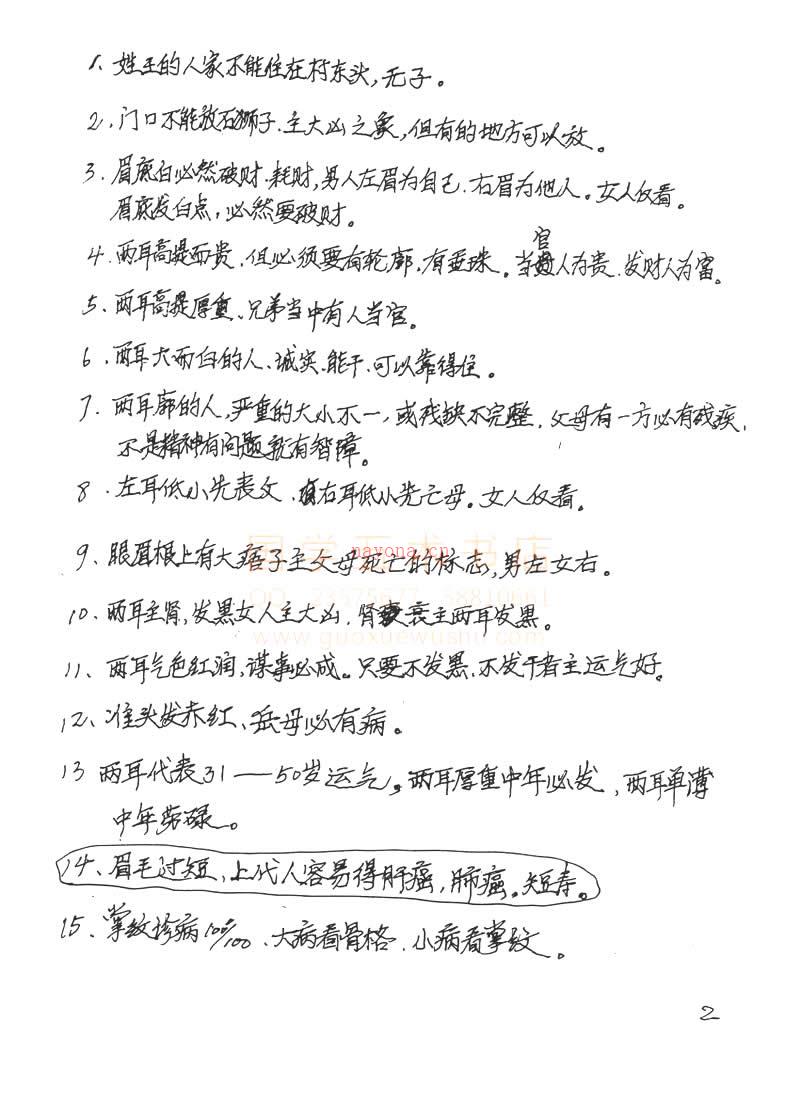 1、姓王的人家不能住在村东头，无子。
2、门口不能放石狮子、主大凶之象，但有的地方可以放。
3、眉底白必然破财、耗财，男人左眉为自己、右眉为他人。女人仅看。
眉底发白点，必然要破财。
4、两耳高提而贵，但必须要有轮廓，有垂珠。当官人为贵、发财人为富。
5、两耳高提厚重、兄弟当中有人当官。
6、两耳大而白的人、诚实、能干、可以靠得住。
7、两耳廓的人，严重的大小不一，或残缺不完整，父母有一方必有残疾，
不是精神有问题就有智障。
8、左耳低小先丧父、右耳低小先亡母。女人仅看。
9、眼眉根上有大痦子主父母死亡的标志，男左女右。
国学五术书店
nayona.cn
QQ 23575677 38810661
www.guoxuewushu.com
10、两耳主肾，发黑女人主大凶，肾衰主两耳发黑。
11、两耳气色红润，谋事必成。只要不发黑、不发干者主运气好。
12、准头发赤红、岳母必有病。
13 两耳代表31—50岁运气。两耳厚重中年必发，两耳单薄
中年劳碌。
14、眉毛过短、上代人容易得肝癌，肺癌。短寿。
15、掌纹诊病100/100、大病看骨格、小病看掌纹。
2